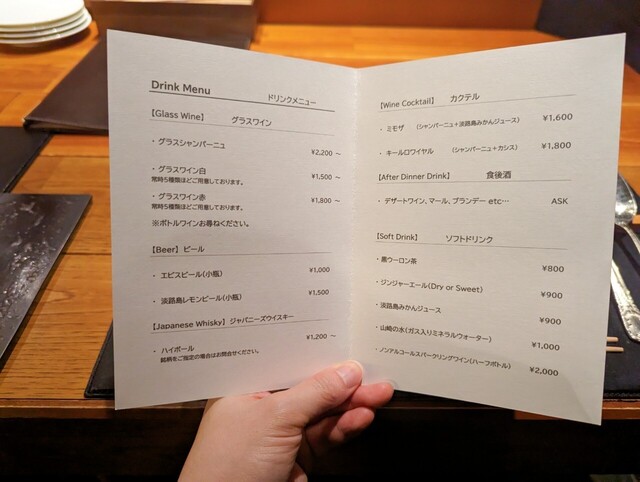 Drink Menu
ドリンクメニュー
【Glass Wine】 グラスワイン
・ グラスシャンパーニュ ¥2,200 ～
・ グラスワイン白 ¥1,500 ～
常時5種類ほどご用意しております。
・ グラスワイン赤 ¥1,800 ～
常時5種類ほどご用意しております。
※ボトルワインお尋ねください。
【Beer】 ビール
・ エビスビール(小瓶) ¥1,000
・ 淡路島レモンビール(小瓶) ¥1,500
【Japanese Whisky】 ジャパニーズウイスキー
・ ハイボール ¥1,200 ～
銘柄をご指定の場合はお問合せください。
【Wine Cocktail】 カクテル
・ ミモザ (シャンパーニュ+淡路島みかんジュース) ¥1,600
・ キールロワイヤル (シャンパーニュ+カシス) ¥1,800
【After Dinner Drink】 食後酒
・ デザートワイン、マール、ブランデー etc… ASK
【Soft Drink】 ソフトドリンク
・ 黒ウーロン茶 ¥800
・ ジンジャーエール(Dry or Sweet) ¥900
・ 淡路島みかんジュース ¥900
・ 山崎の水(ガス入りミネラルウォーター) ¥1,000
・ ノンアルコールスパークリングワイン(ハーフボトル) ¥2,000